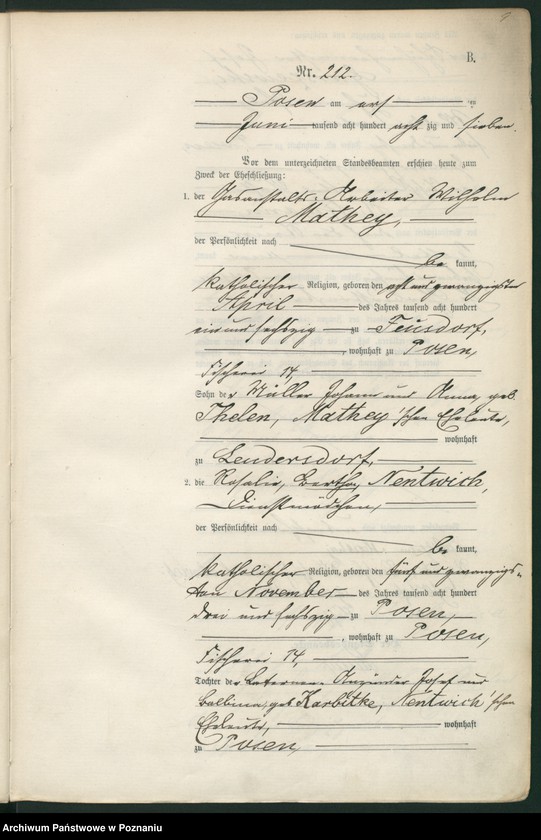 B.
Nr. 212.
Posen am ersten
Juni tausend acht hundert achtzig und sieben.
Vor dem unterzeichneten Standesbeamten erschien heute zum
Zweck der Eheschließung:
1. der Gasanstalts-Arbeiter Wilhelm
Mathey,
der Persönlichkeit nach
be kannt,
katholischer Religion, geboren den acht und zwanzigsten
April des Jahres tausend acht hundert
ein und sechszig zu Feusdorf,
, wohnhaft zu Posen,
Fischerei 14,
Sohn des Müller Johann und Anna, geb.
Thelen, Mathey'schen Eheleute,
wohnhaft
zu Lendersdorf,
2. die Rosalie, Bertha, Nentwich,
Dienstmädchen,
der Persönlichkeit nach
be kannt,
katholischer Religion, geboren den fünf und zwanzigs-
ten November des Jahres tausend acht hundert
drei und sechszig zu Posen,
, wohnhaft zu Posen,
Fischerei 14,
Tochter des Laternen-Anzünder Josef und
Balbina, geb. Karbitke, Nentwich'schen
Eheleute, wohnhaft
zu Posen,
Archiwum Państwowe w Poznaniu